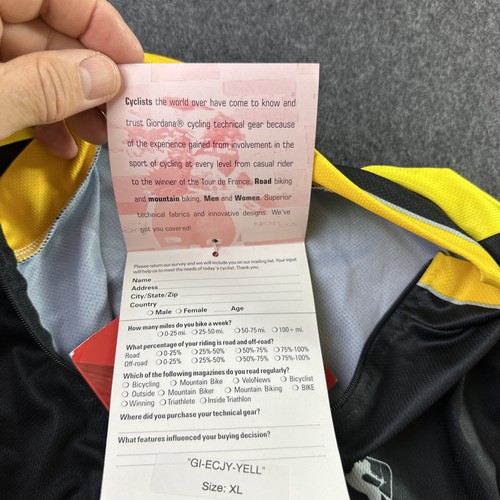 Cyclists the world over have come to know and
trust Giordana® cycling technical gear because
of the experience gained from involvement in the
sport of cycling at every level from casual rider
to the winner of the Tour de France. Road biking
and mountain biking. Men and Women. Superior
technical fabrics and innovative designs. We've
got you covered!
Please return our survey and we will include you on our mailing list. Your input
will help us to meet the needs of today's cyclist. Thank you.
Name
Address
City/State/Zip
Country
Male Female Age
How many miles do you bike a week?
0-25 mi. 25-50 mi. 50-75 mi. 100+ mi.
What percentage of your riding is road and off-road?
Road 0-25% 25%-50% 50%-75% 75%-100%
Off-road 0-25% 25%-50% 50%-75% 75%-100%
Which of the following magazines do you read regularly?
Bicycling Mountain Bike VeloNews Bicyclist
Outside Mountain Biker Mountain Biking BIKE
Winning Triathlete Inside Triathlon
Where did you purchase your technical gear?
What features influenced your buying decision?
"GI-ECJY-YELL"
Size: XL